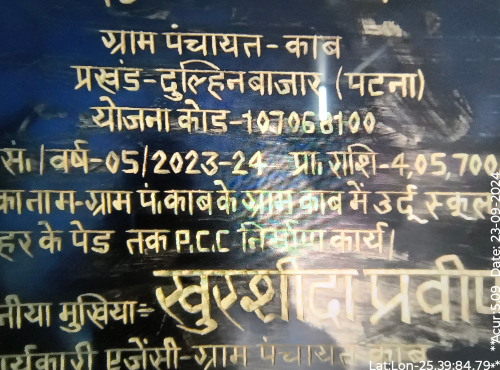 ग्राम पंचायत - काब
प्रखंड-दुल्हिनबाजार (पटना)
योजना कोड-107068100
सं./वर्ष-05/2023-24 प्रा. राशि-4,05,700
का नाम-ग्राम पं. काब के ग्राम काब में उर्दू स्कूल
हर के पेड तक P.C.C निर्माण कार्य।
नीया मुखिया:- खुरशीदा प्रवीण
र्यकारी एजेंसी-ग्राम पंचायत काब
Lat:Lon-25.39:84.79**
**Acur:5.09 Date: 23-09-2024